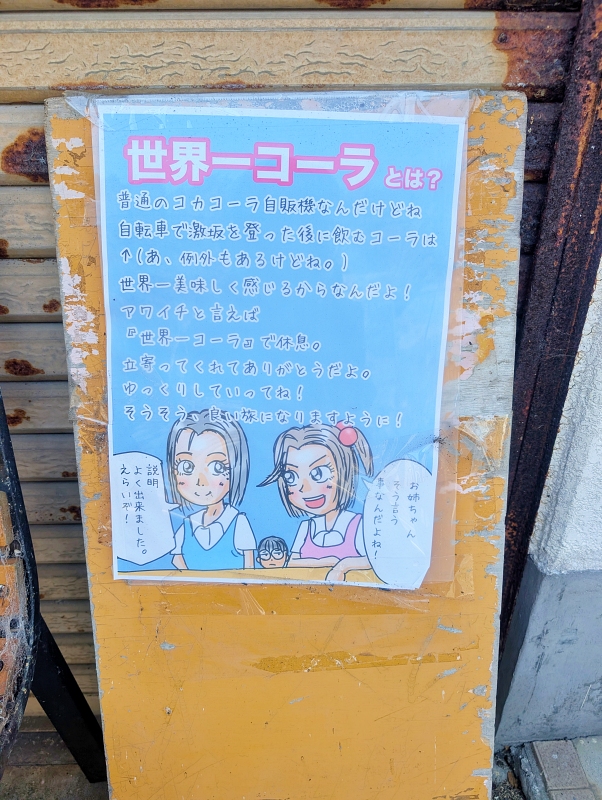 世界一コーラとは?
普通のコカコーラ自販機なんだけどね
自転車で激坂を登った後に飲むコーラは
↑(あ、例外もあるけどね。)
世界一美味しく感じるからなんだよ!
アワイチと言えば
『世界一コーラ』で休息。
立寄ってくれてありがとうだよ。
ゆっくりしていってね!
そうそう、良い旅になりますように!
お姉ちゃん
そう言う
事なんだよね!
説明
よく出来ました。
えらいぞ!